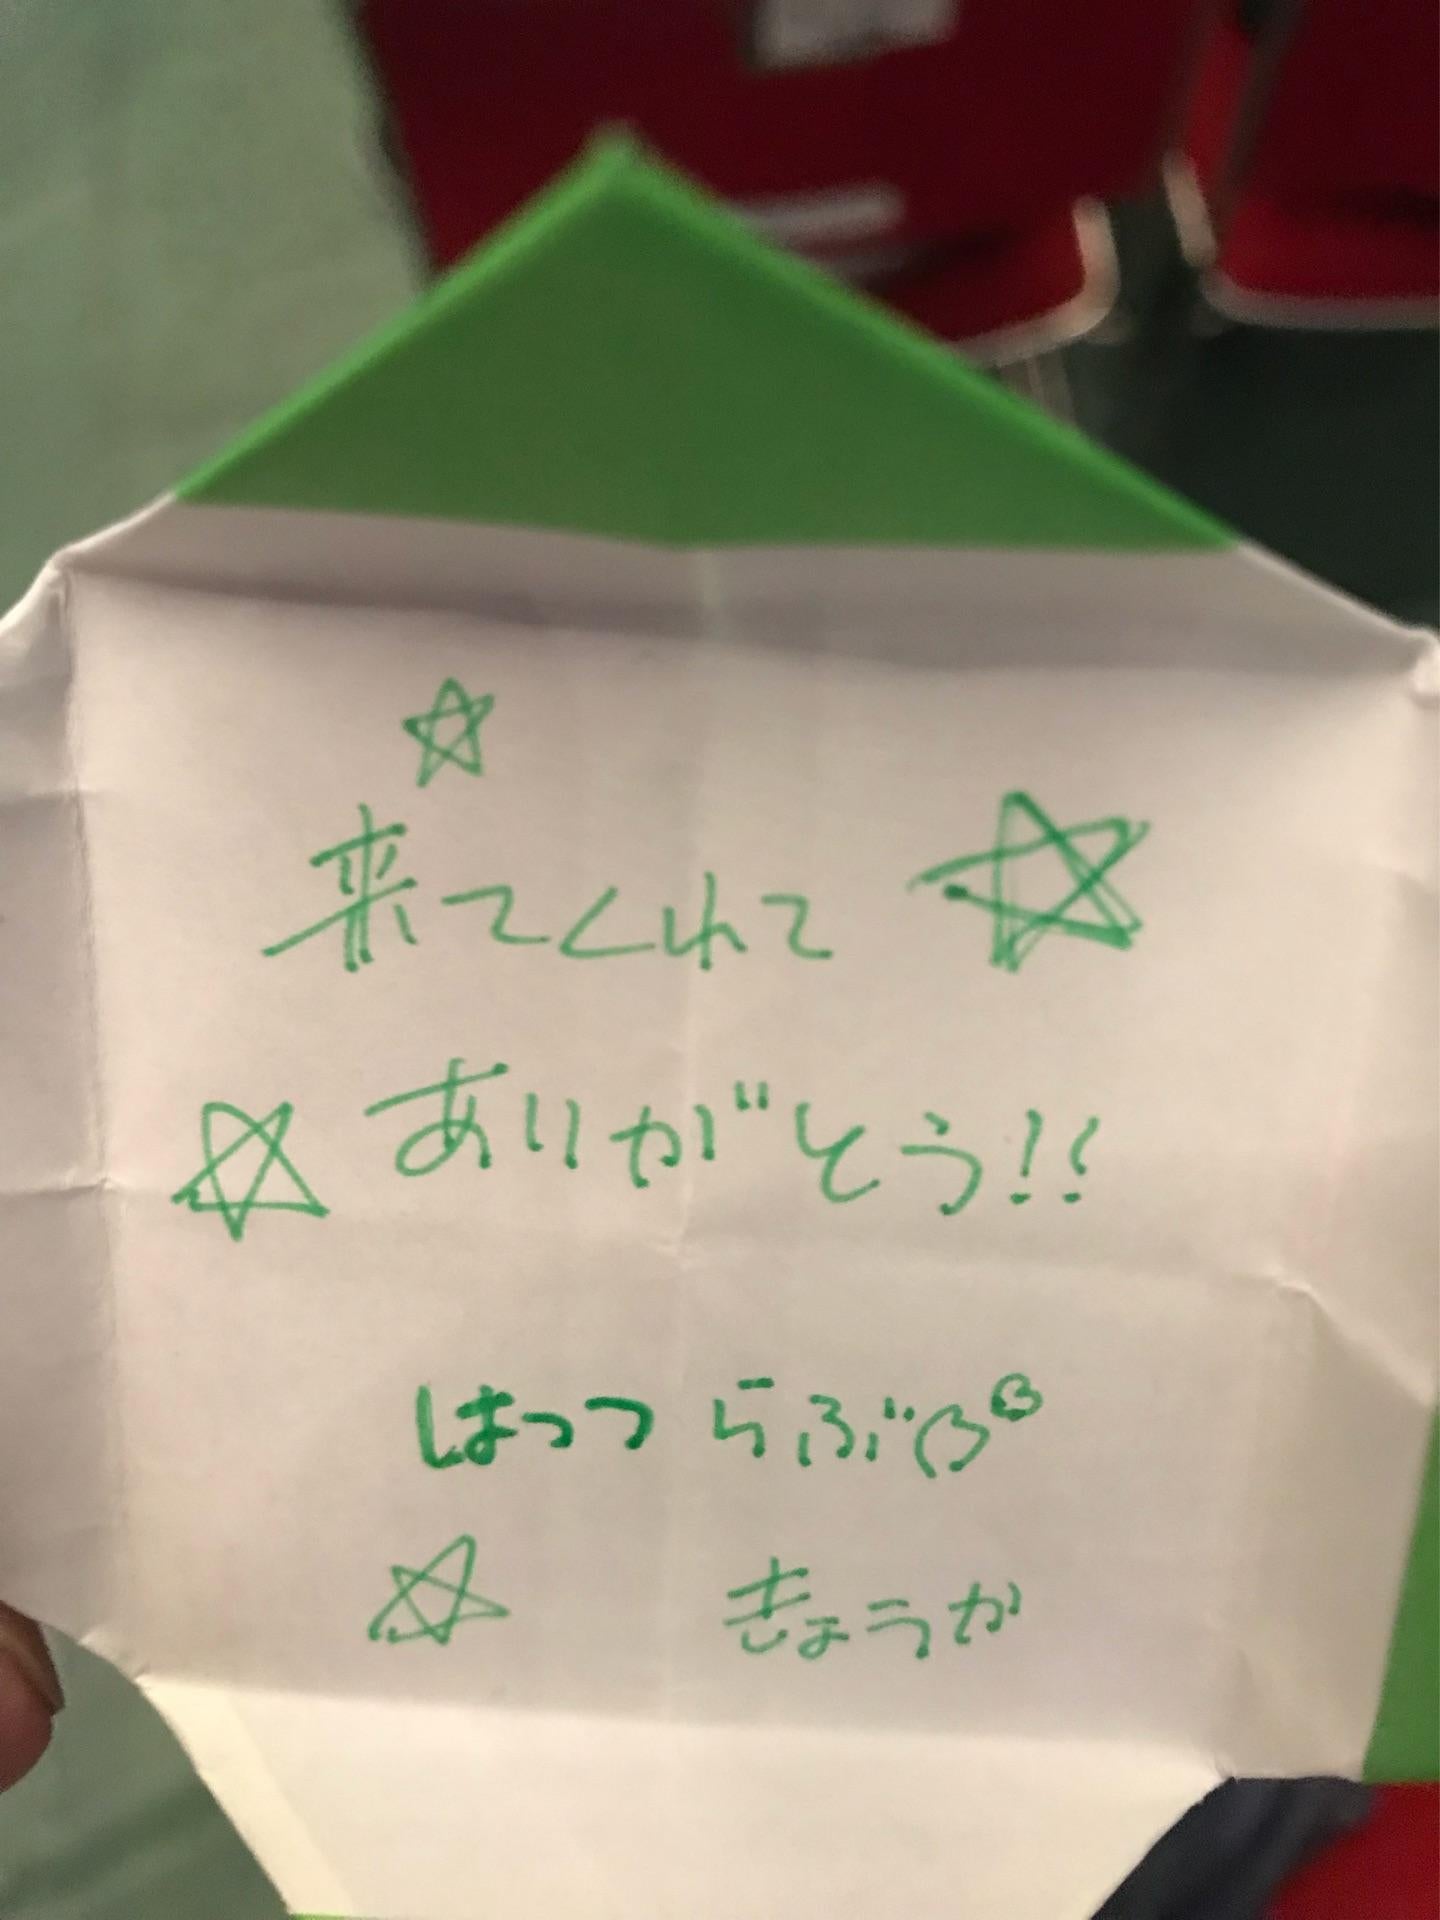 来てくれて
ありがとう!!
はっつ らぶ
きょうか